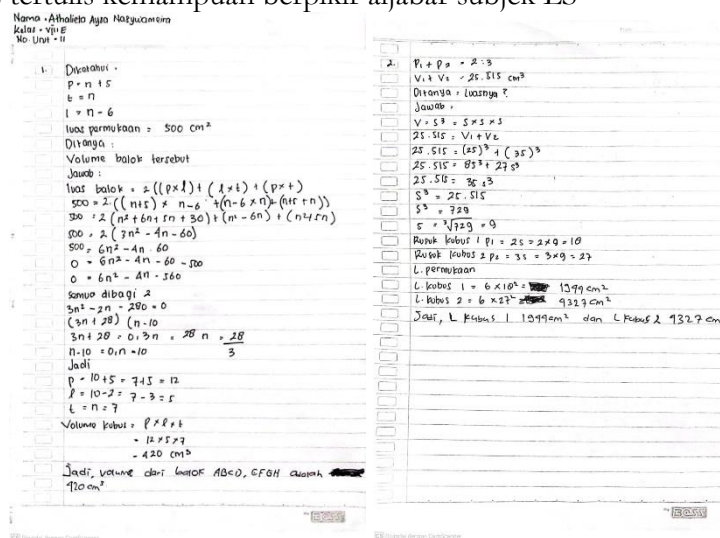 tertulis kemampuan berpikir aljabar subjek ES
Nama : Athalieta Ayra Nazywameira
kelas : VIII E
No. Urut : 11
1. Diketahui :
P = n + 5
t = n
l = n - 6
luas permukaan = 500 cm²
Ditanya :
Volume balok tersebut
Jawab :
luas balok = 2((p×l) + (l×t) + (p×t)
500 = 2((n+5) × n-6 +(n-6 × n)+(n+5 + n))
500 = 2(n² + 6n + 5n + 30) + (n² - 6n) + (n²+5n)
500 = 2(3n² - 4n - 60)
500 = 6n² - 4n - 60
0 = 6n² - 4n - 60 - 500
0 = 6n² - 4n - 560
semua dibagi 2
3n² - 2n - 280 = 0
(3n + 28) (n-10
3n + 28 = 0, 3n = 28 n = 28/3
n-10 = 0, n = 10
Jadi
P = 10+5 = 7+5 = 12
l = 10-2 = 7-3 = 5
t = n = 7
Volume kubus = P × l × t
= 12×5×7
= 420 cm³
Jadi, volume dari balok ABCD, EFGH adalah
420 cm³
BOSS
2. P₁ + P₂ = 2:3
V₁ + V₂ = 25.515 cm³
Ditanya : Luasnya ?
Jawab :
V = S³ = S × S × S
25.515 = V₁ + V₂
25.515 = (2S)³ + (3S)³
25.515 = 8S³ + 27S³
25.515 = 35 s³
S³ = 25.515
S³ = 729
S = ³√729 = 9
Rusuk kubus 1 P₁ = 2S = 2×9 = 18
Rusuk kubus 2 P₂ = 3S = 3×9 = 27
L. permukaan
L. kubus 1 = 6 × 18² = 1944 cm²
L. kubus 2 = 6 × 27² = 4327 cm²
Jadi, L kubus 1 1944cm² dan L kubus 2 4327 cm
BOSS